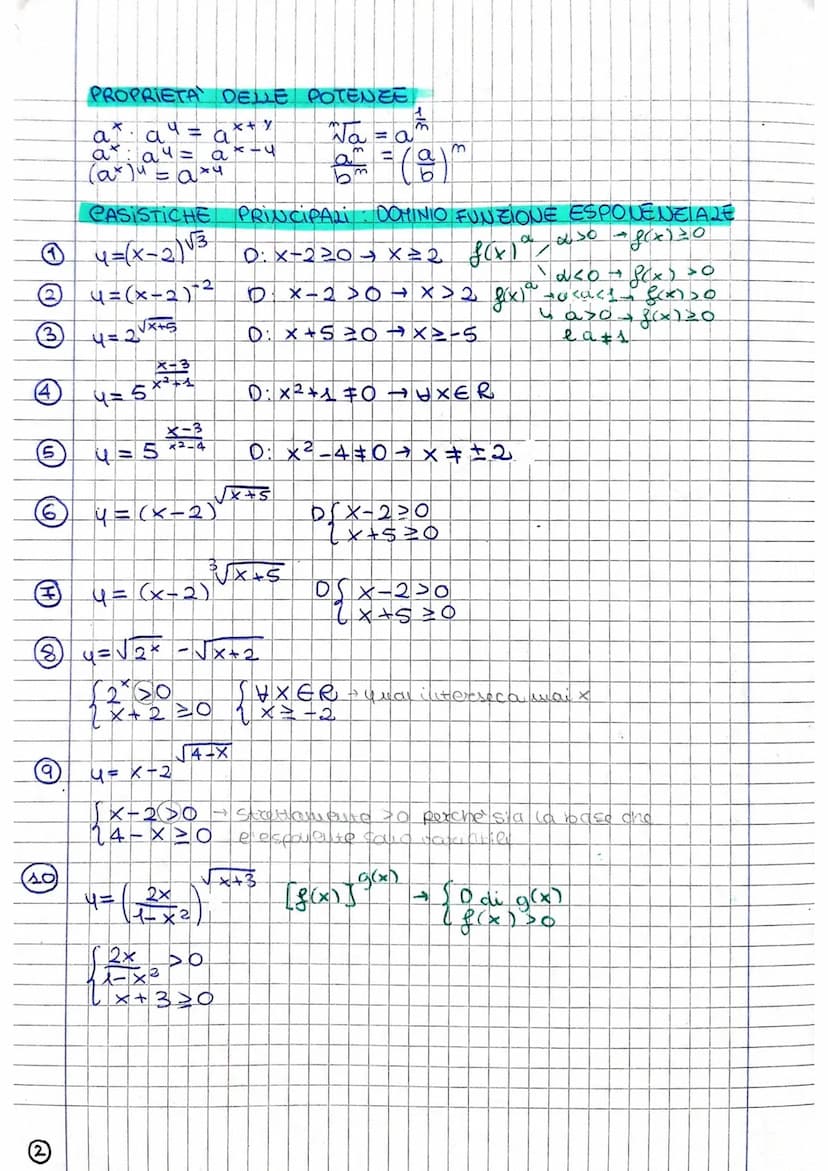 PROPRIETA' DELLE POTENZE
aˣ · aʸ = aˣ⁺ʸ ⁿ√a = a^(1/n)
aˣ : aʸ = aˣ⁻ʸ aᵐ/bᵐ = (a/b)ᵐ
(aˣ)ʸ = aˣʸ
CASISTICHE PRINCIPALI : DOMINIO FUNZIONE ESPONENZIALE
① y=(x-2)^√3 D: x-2≥0 → x≥2 f(x)^α, α>0 → f(x)≥0
α<0 → f(x)>0
② y=(x-2)⁻² D: x-2>0 → x>2 f(x)^a → 0<a<1 → f(x)>0
↳ a>0 → f(x)≥0
③ y=2^√(x+5) D: x+5≥0 → x≥-5 e a≠1
④ y=5^((x-3)/(x²+1)) D: x²+1≠0 → ∀x∈R
⑤ y=5^((x-3)/(x²-4)) D: x²-4≠0 → x≠±2
⑥ y=(x-2)^√(x+5) D{x-2>0
x+5≥0
⑦ y=(x-2)^∛(x+5) D{x-2>0
x+5≥0
⑧ y=√(2ˣ) - √(x+2)
{2ˣ>0 {∀x∈R → y mai interseca mai x
x+2≥0 x≥-2
⑨ y= x-2^√(4-x)
{x-2>0 → strettamente >0 perché sia la base che
4-x≥0 l'esponente sono variabili
⑩ y=(2x/(1-x²))^√(x+3) [f(x)]^g(x) → {D di g(x)
f(x)>0
{2x/(1-x²) >0
x+3≥0
②